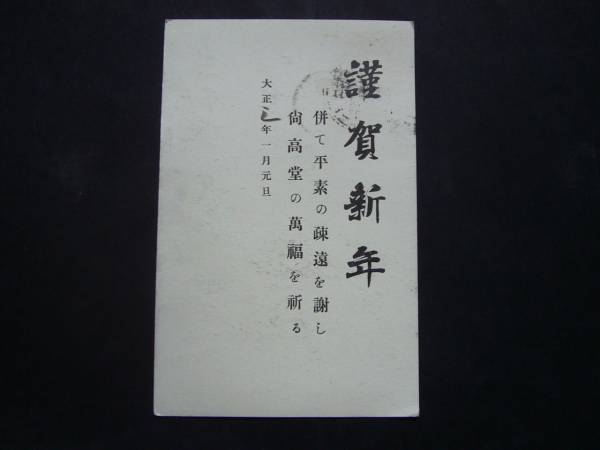 謹賀新年
併て平素の疎遠を謝し
尙高堂の萬福を祈る
大正年一月元旦